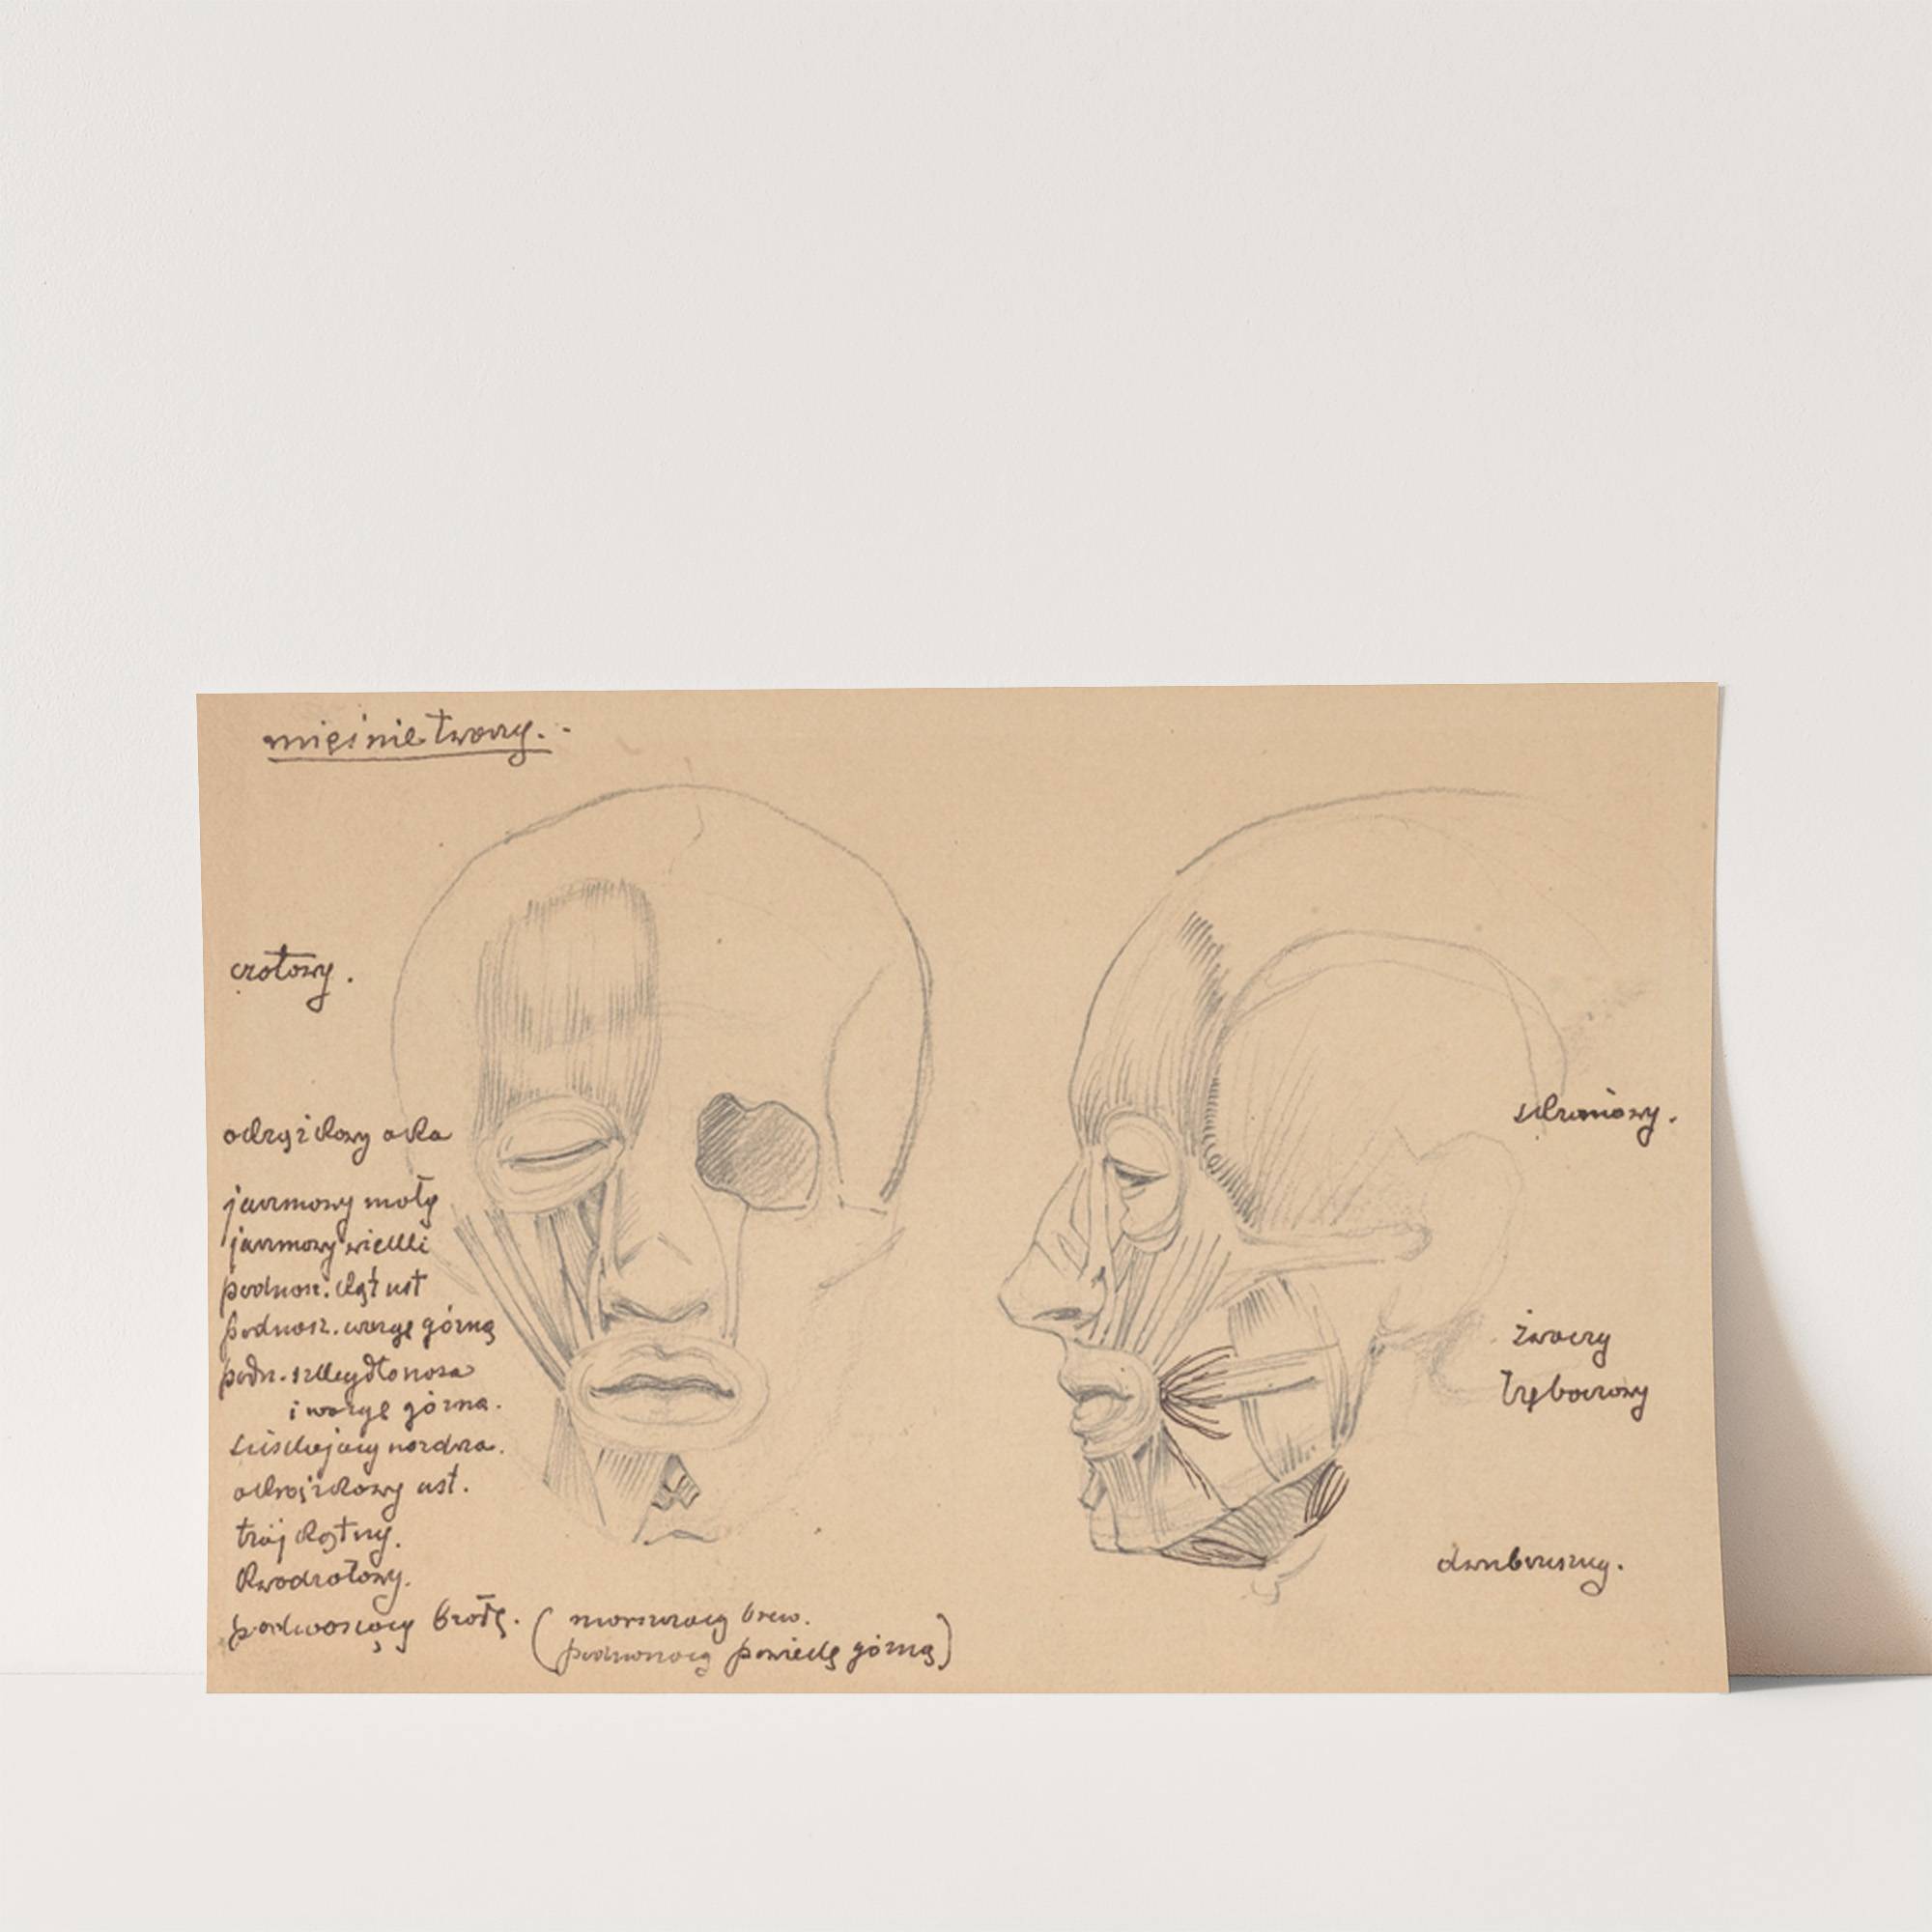 mięśnie twarzy.
czołowy.
okrężkowy oka
jarzmowy mały
jarzmowy wielki
podnosz. kąt ust
podnosz. wargę górną
podn. skrzydło nosa
i wargę górną.
ściskający nozdrza.
okrężkowy ust.
trójkątny.
Kwadratowy.
podnoszący brodę. (marszczący brew.
podnoszący powiekę górną)
skroniowy.
żwaczy
trębaczowy
dwubrzuszny.